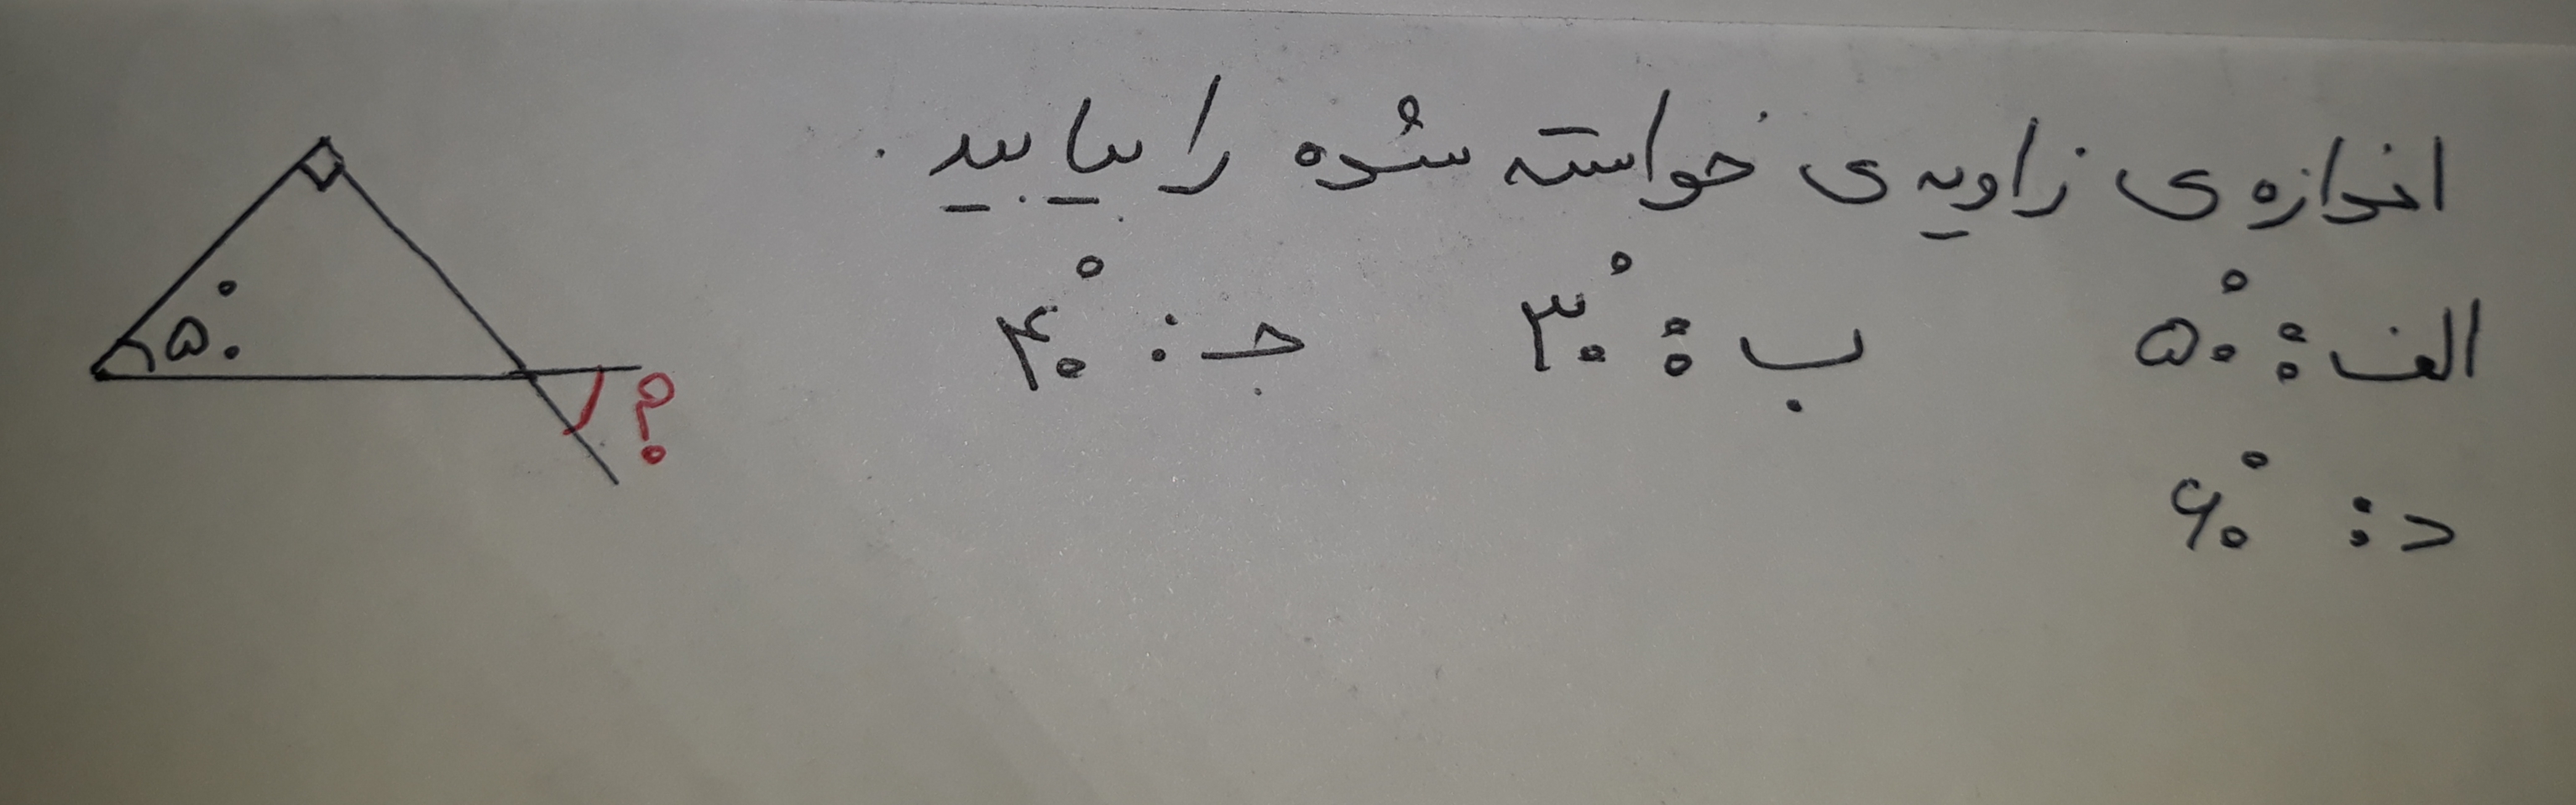 اندازه ی زاویه ی خواسته شده را بیابید.
الف: ۵۰° ب: ۳۰° ج: ۴۰°
د: ۶۰°
۵۰°
؟